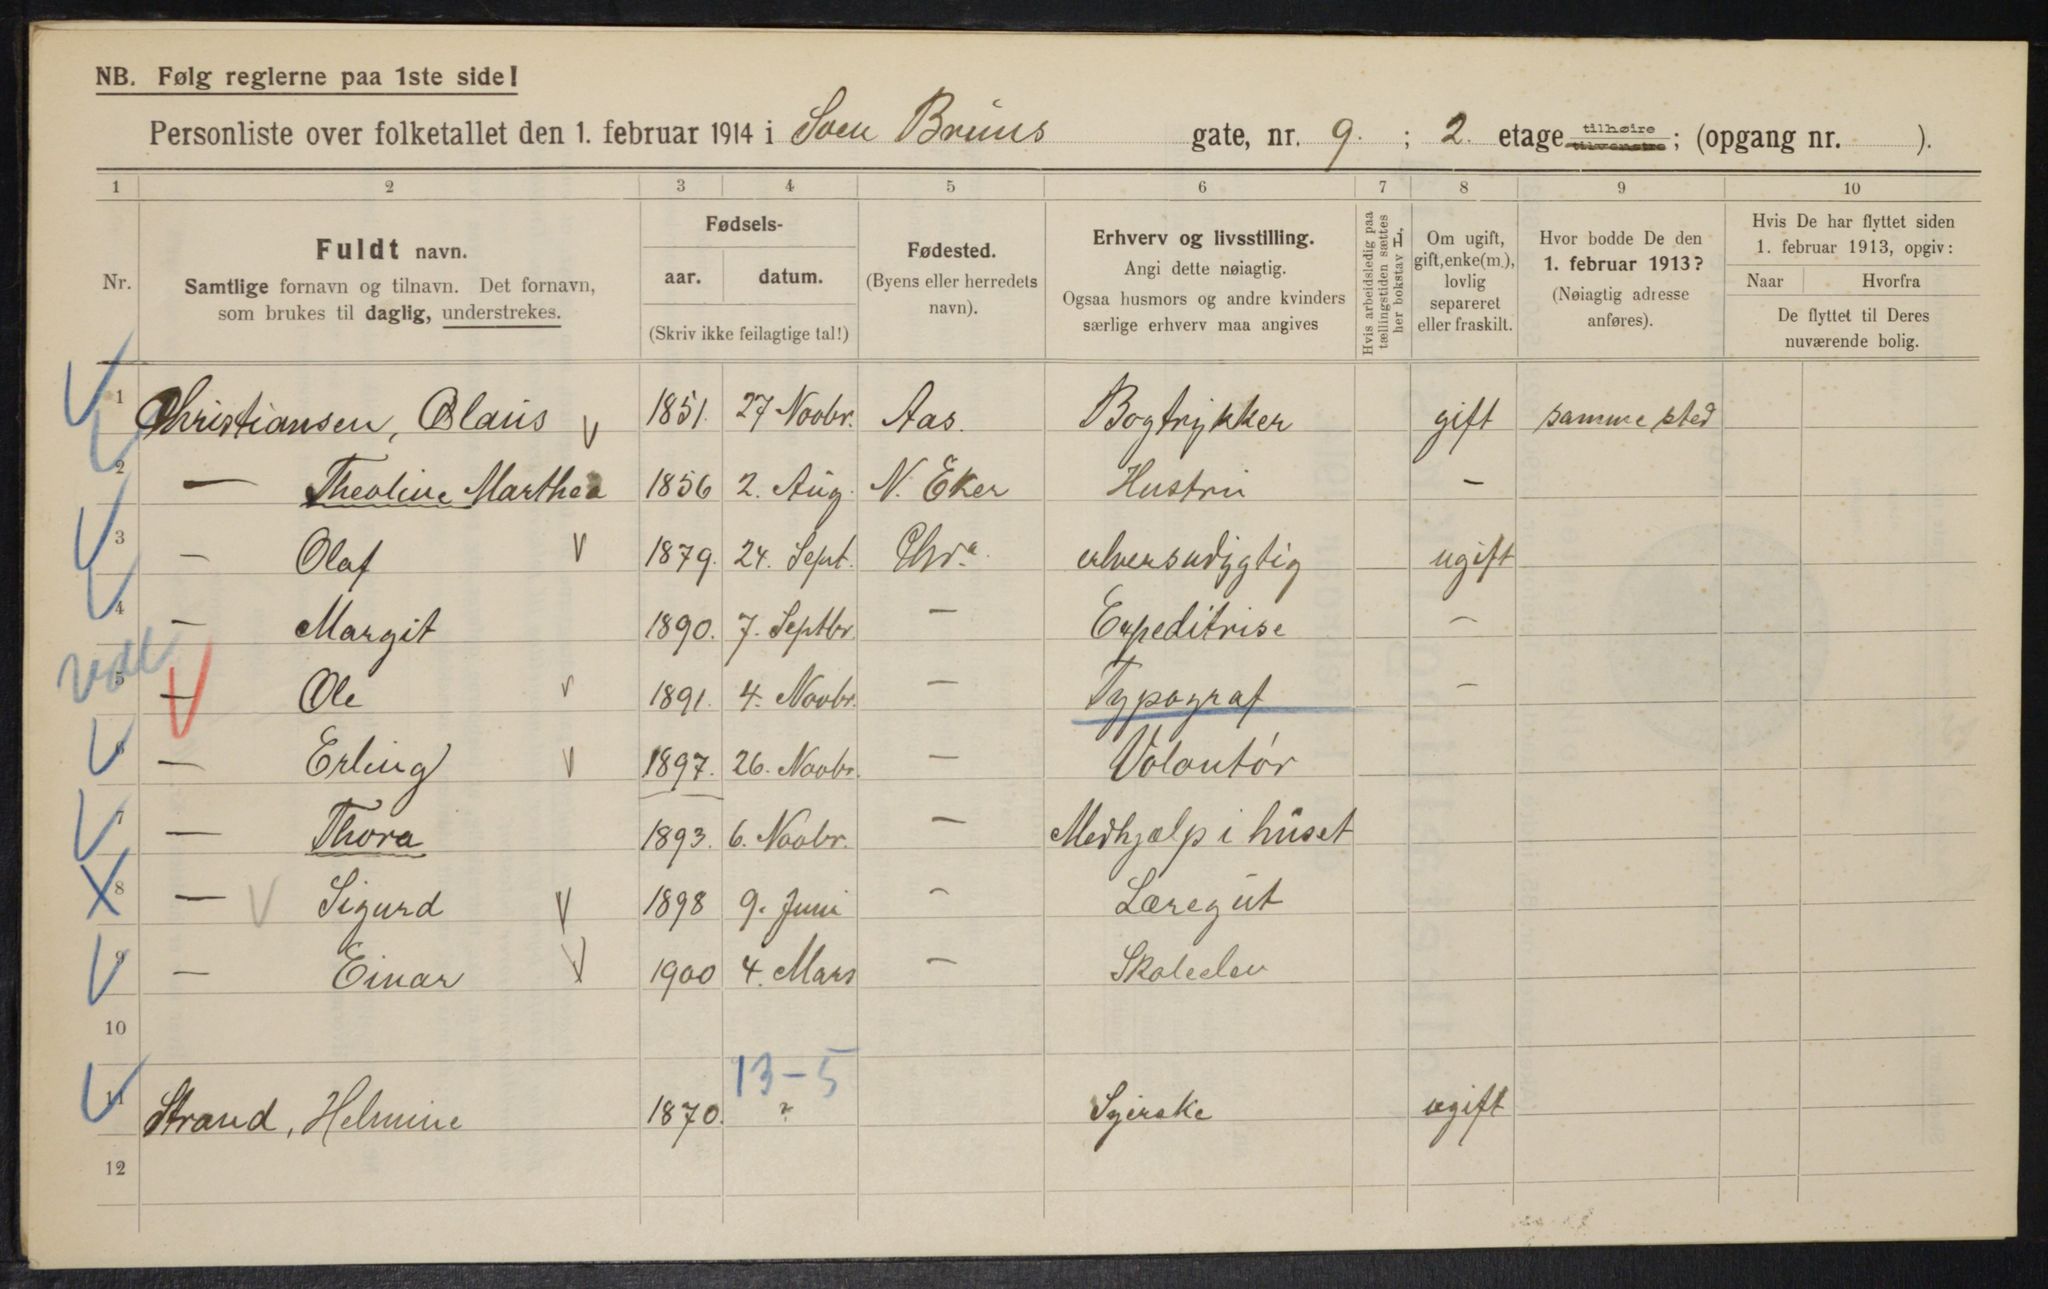 NB. Følg reglerne paa 1ste side!
Personliste over folketallet den 1. februar 1914 i Sven Bruns gate, nr. 9. ; 2. etage tilhøire tilvenstre ; (opgang nr. ).
1 2 3 4 5 6 7 8 9 10
Nr.
Fuldt navn.
Samtlige fornavn og tilnavn. Det fornavn,
som brukes til daglig, understrekes.
Fødsels-
aar. datum.
(Skriv ikke feilagtige tal!)
Fødested.
(Byens eller herredets
navn).
Erhverv og livsstilling.
Angi dette nøiagtig.
Ogsaa husmors og andre kvinders
særlige erhverv maa angives
Hvis arbeidsledig paa
tællingstiden sættes
her bokstav L.
Om ugift,
gift, enke(m.),
lovlig
separeret
eller fraskilt.
Hvor bodde De den
1. februar 1913?
(Nøiagtig adresse
anføres).
Hvis De har flyttet siden
1. februar 1913, opgiv:
Naar Hvorfra
De flyttet til Deres
nuværende bolig.
1 Christiansen, Olaus V 1851. 27 Novbr. Aas. Bogtrykker gift samme sted
2 — Theoline Marthea 1856 2. Aug. N. Eker Hustru —
3 — Olaf V 1879. 24. Sept. Chra. ugift
4 — Margit 1890. 7. Septbr. — Expeditrise —
5 — Ole V 1891. 4. Novbr. — Typograf —
6 — Erling V 1897. 26. Novbr. — Volontør
7 — Thora 1893. 6. Novbr. — Medhjælp i huset
8 — V Sigurd V 1898 9. Juni — Læregut
9 — Einar V 1900 4. Mars — Skoleelev
10
13-5
11 Strand, Helmine 1870. ? Syerske ugift
12